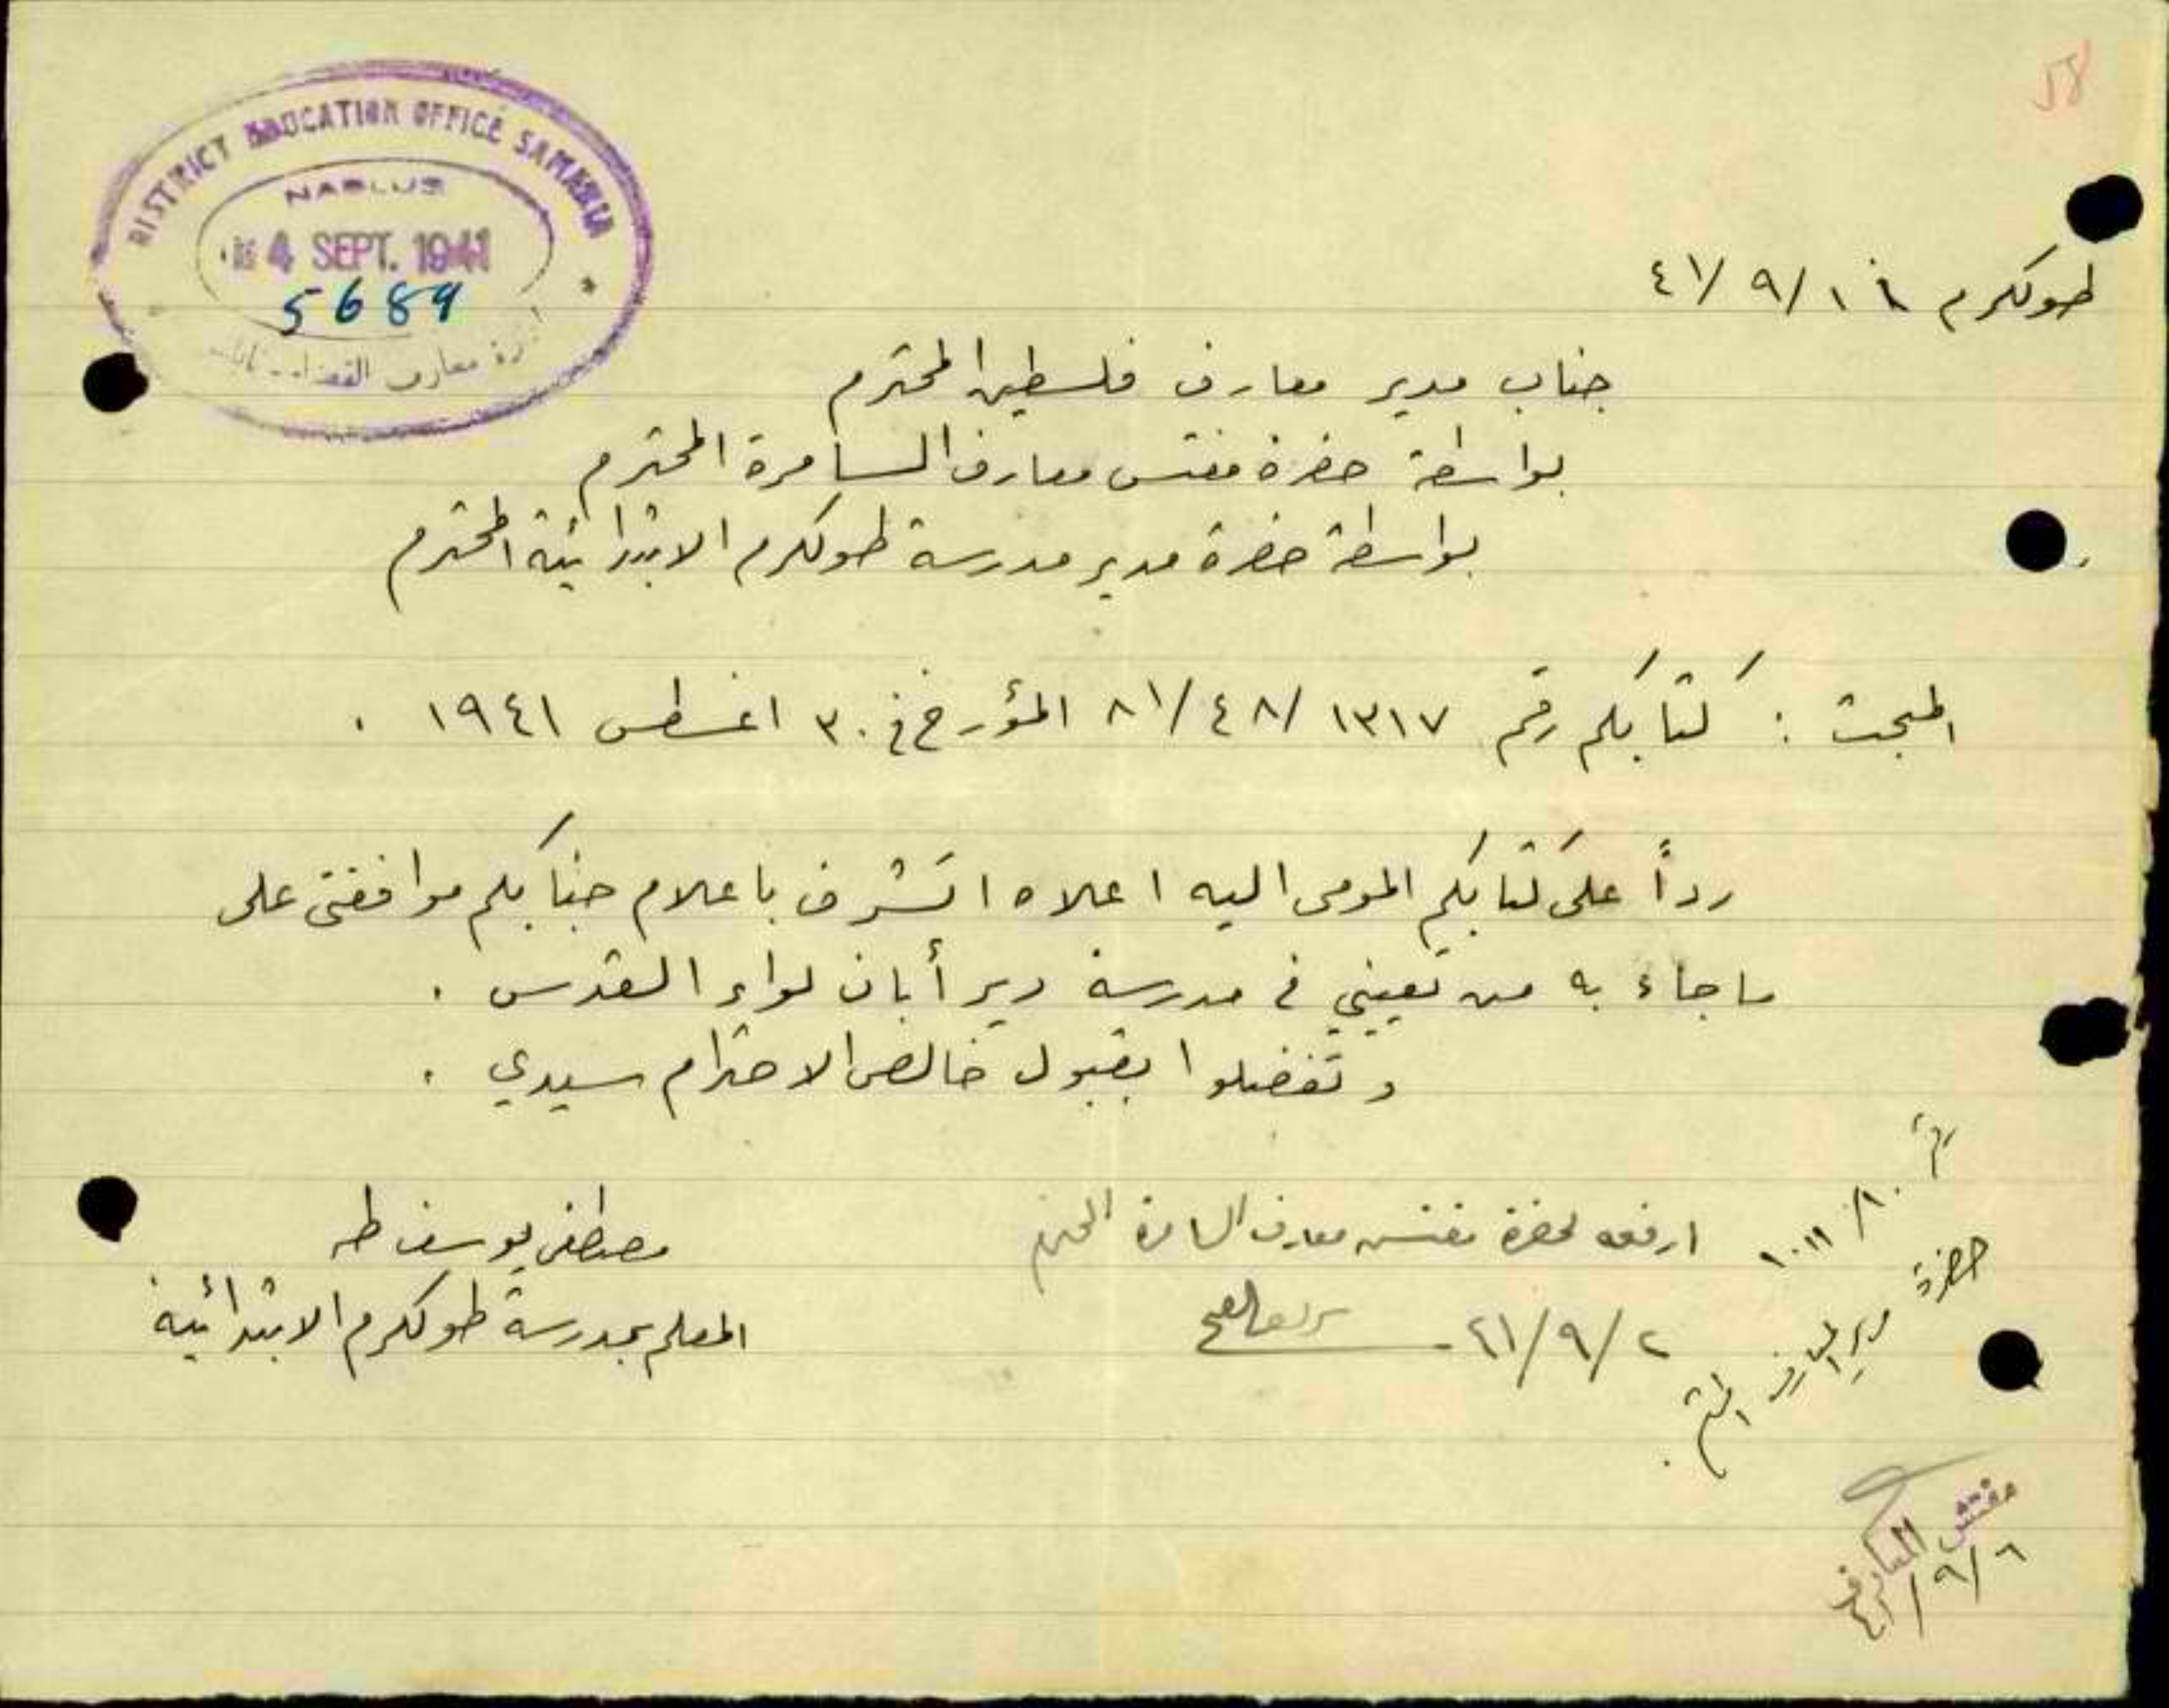 58
DISTRICT EDUCATION OFFICE SAMARIA
NABLUS
4 SEPT. 1941
5689
معارف
طولكرم ٤١/٩/١
جناب مدير معارف فلسطين المحترم
بواسطة حضرة مفتش معارف السامرة المحترم
بواسطة حضرة مدير مدرسة طولكرم الابتدائية المحترم
المبحث : كتابكم رقم ١٣١٧ /٨١/٤٨ المؤرخ في ٣٠ اغسطس ١٩٤١ .
رداً على كتابكم المومى اليه اعلاه اتشرف باعلام جنابكم موافقتي على
ما جاء به من تعييني في مدرسة دير أبان لواء القدس .
وتفضلوا بقبول خالص الاحترام سيدي .
مصطفى يوسف طه
المعلم بمدرسة طولكرم الابتدائية
ارفعه لحضرة مفتش معارف السامرة المحترم
٤١/٩/٢
حضرة مدير المعارف المحترم .
مفتش المعارف
٤١/٩/٦